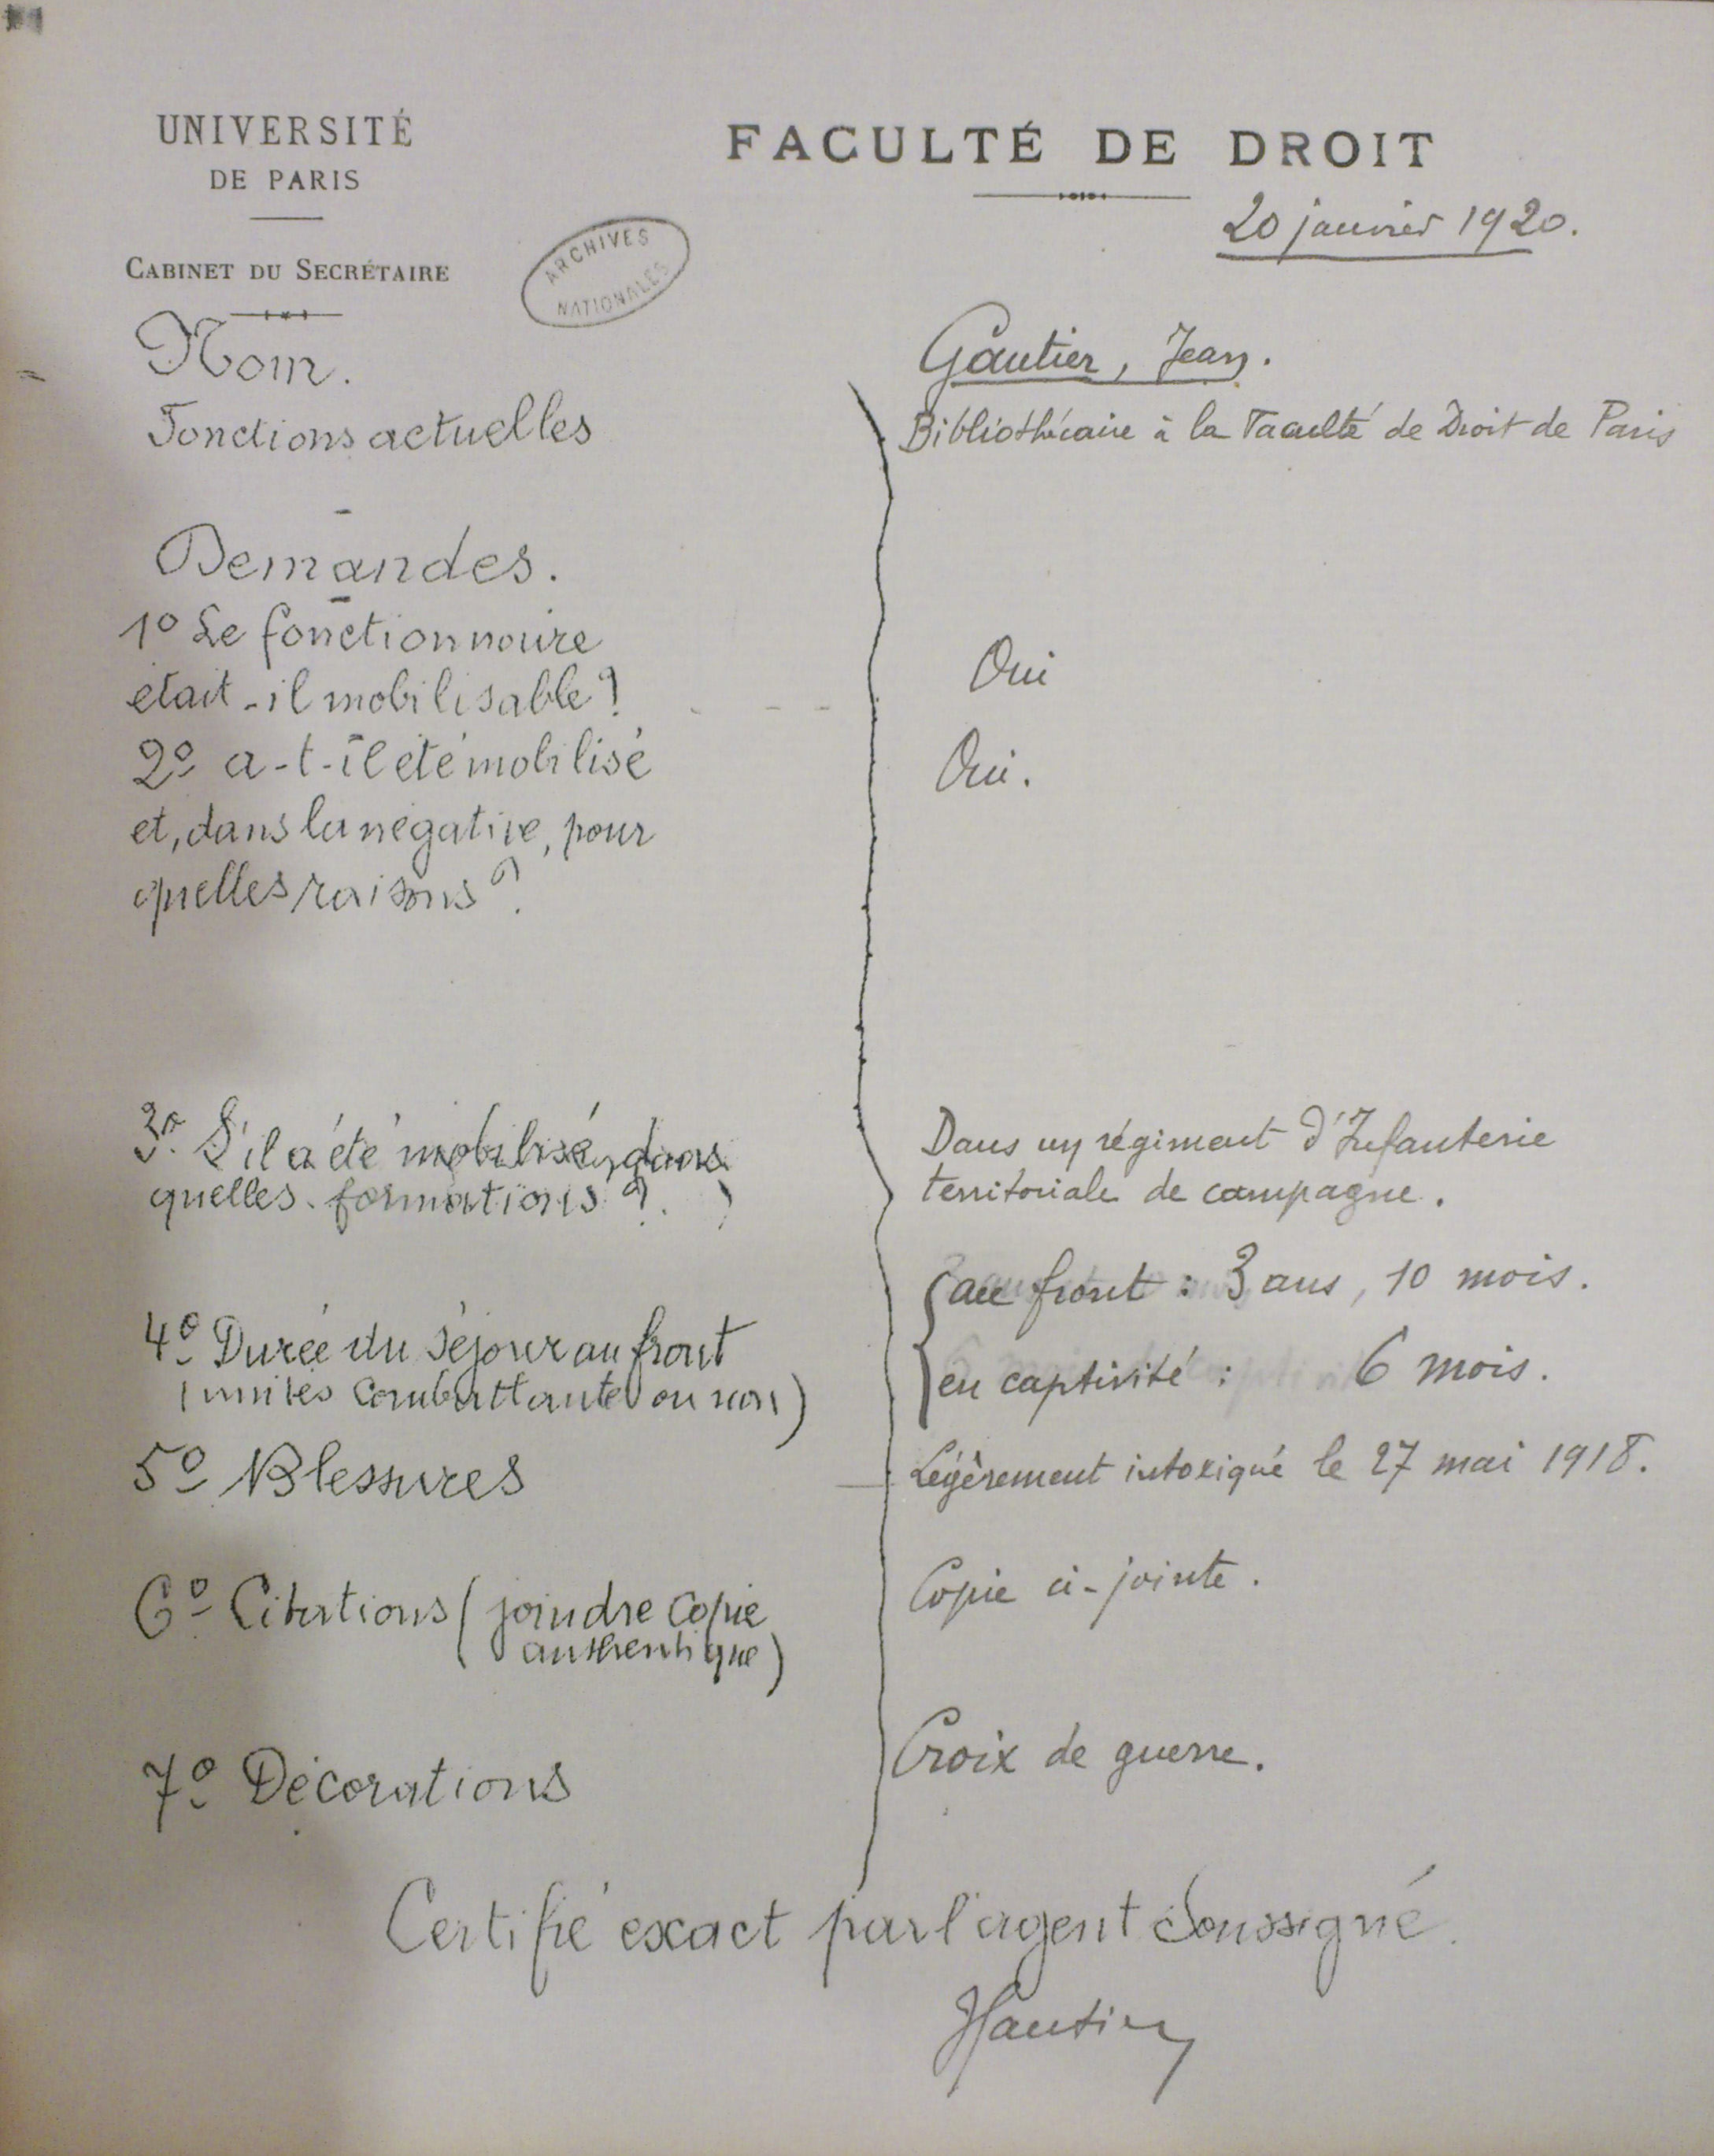 UNIVERSITÉ
DE PARIS
CABINET DU SECRÉTAIRE
FACULTÉ DE DROIT
20 janvier 1920.
ARCHIVES
NATIONALES
Nom.
Gautier, Jean.
Fonctions actuelles
Bibliothécaire à la Faculté de Droit de Paris
Demandes.
1º Le fonctionnaire
était-il mobilisable?
Oui
2º a-t-il été mobilisé
Oui.
et, dans la négative, pour
quelles raisons?
3º S'il a été mobilisé, dans
quelles formations?
Dans un régiment d'Infanterie
territoriale de campagne.
4º Durée du séjour au front
(unités combattantes ou non)
au front : 3 ans, 10 mois.
en captivité : 6 mois.
5º Blessures
Légèrement intoxiqué le 27 mai 1918.
6º Citations (joindre copie
authentique)
Copie ci-jointe.
7º Décorations
Croix de guerre.
Certifié exact par l'agent soussigné.
JGautier